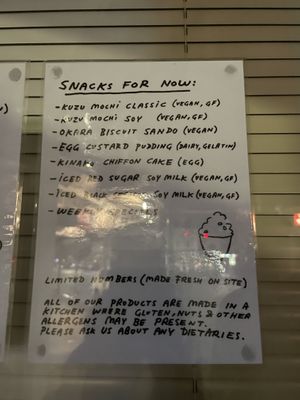 SNACKS FOR NOW:
- KUZU MOCHI CLASSIC (VEGAN, GF)
- KUZU MOCHI SOY (VEGAN, GF)
- OKARA BISCUIT SANDO (VEGAN)
- EGG CUSTARD PUDDING (DAIRY, GELATIN)
- KINAKO CHIFFON CAKE (EGG)
- ICED RED SUGAR SOY MILK (VEGAN, GF)
- ICED BLACK SOY MILK (VEGAN, GF)
- WEEKLY SPECIALS
LIMITED NUMBERS (MADE FRESH ON SITE)
ALL OF OUR PRODUCTS ARE MADE IN A
KITCHEN WHERE GLUTEN, NUTS & OTHER
ALLERGENS MAY BE PRESENT.
PLEASE ASK US ABOUT ANY DIETARIES.